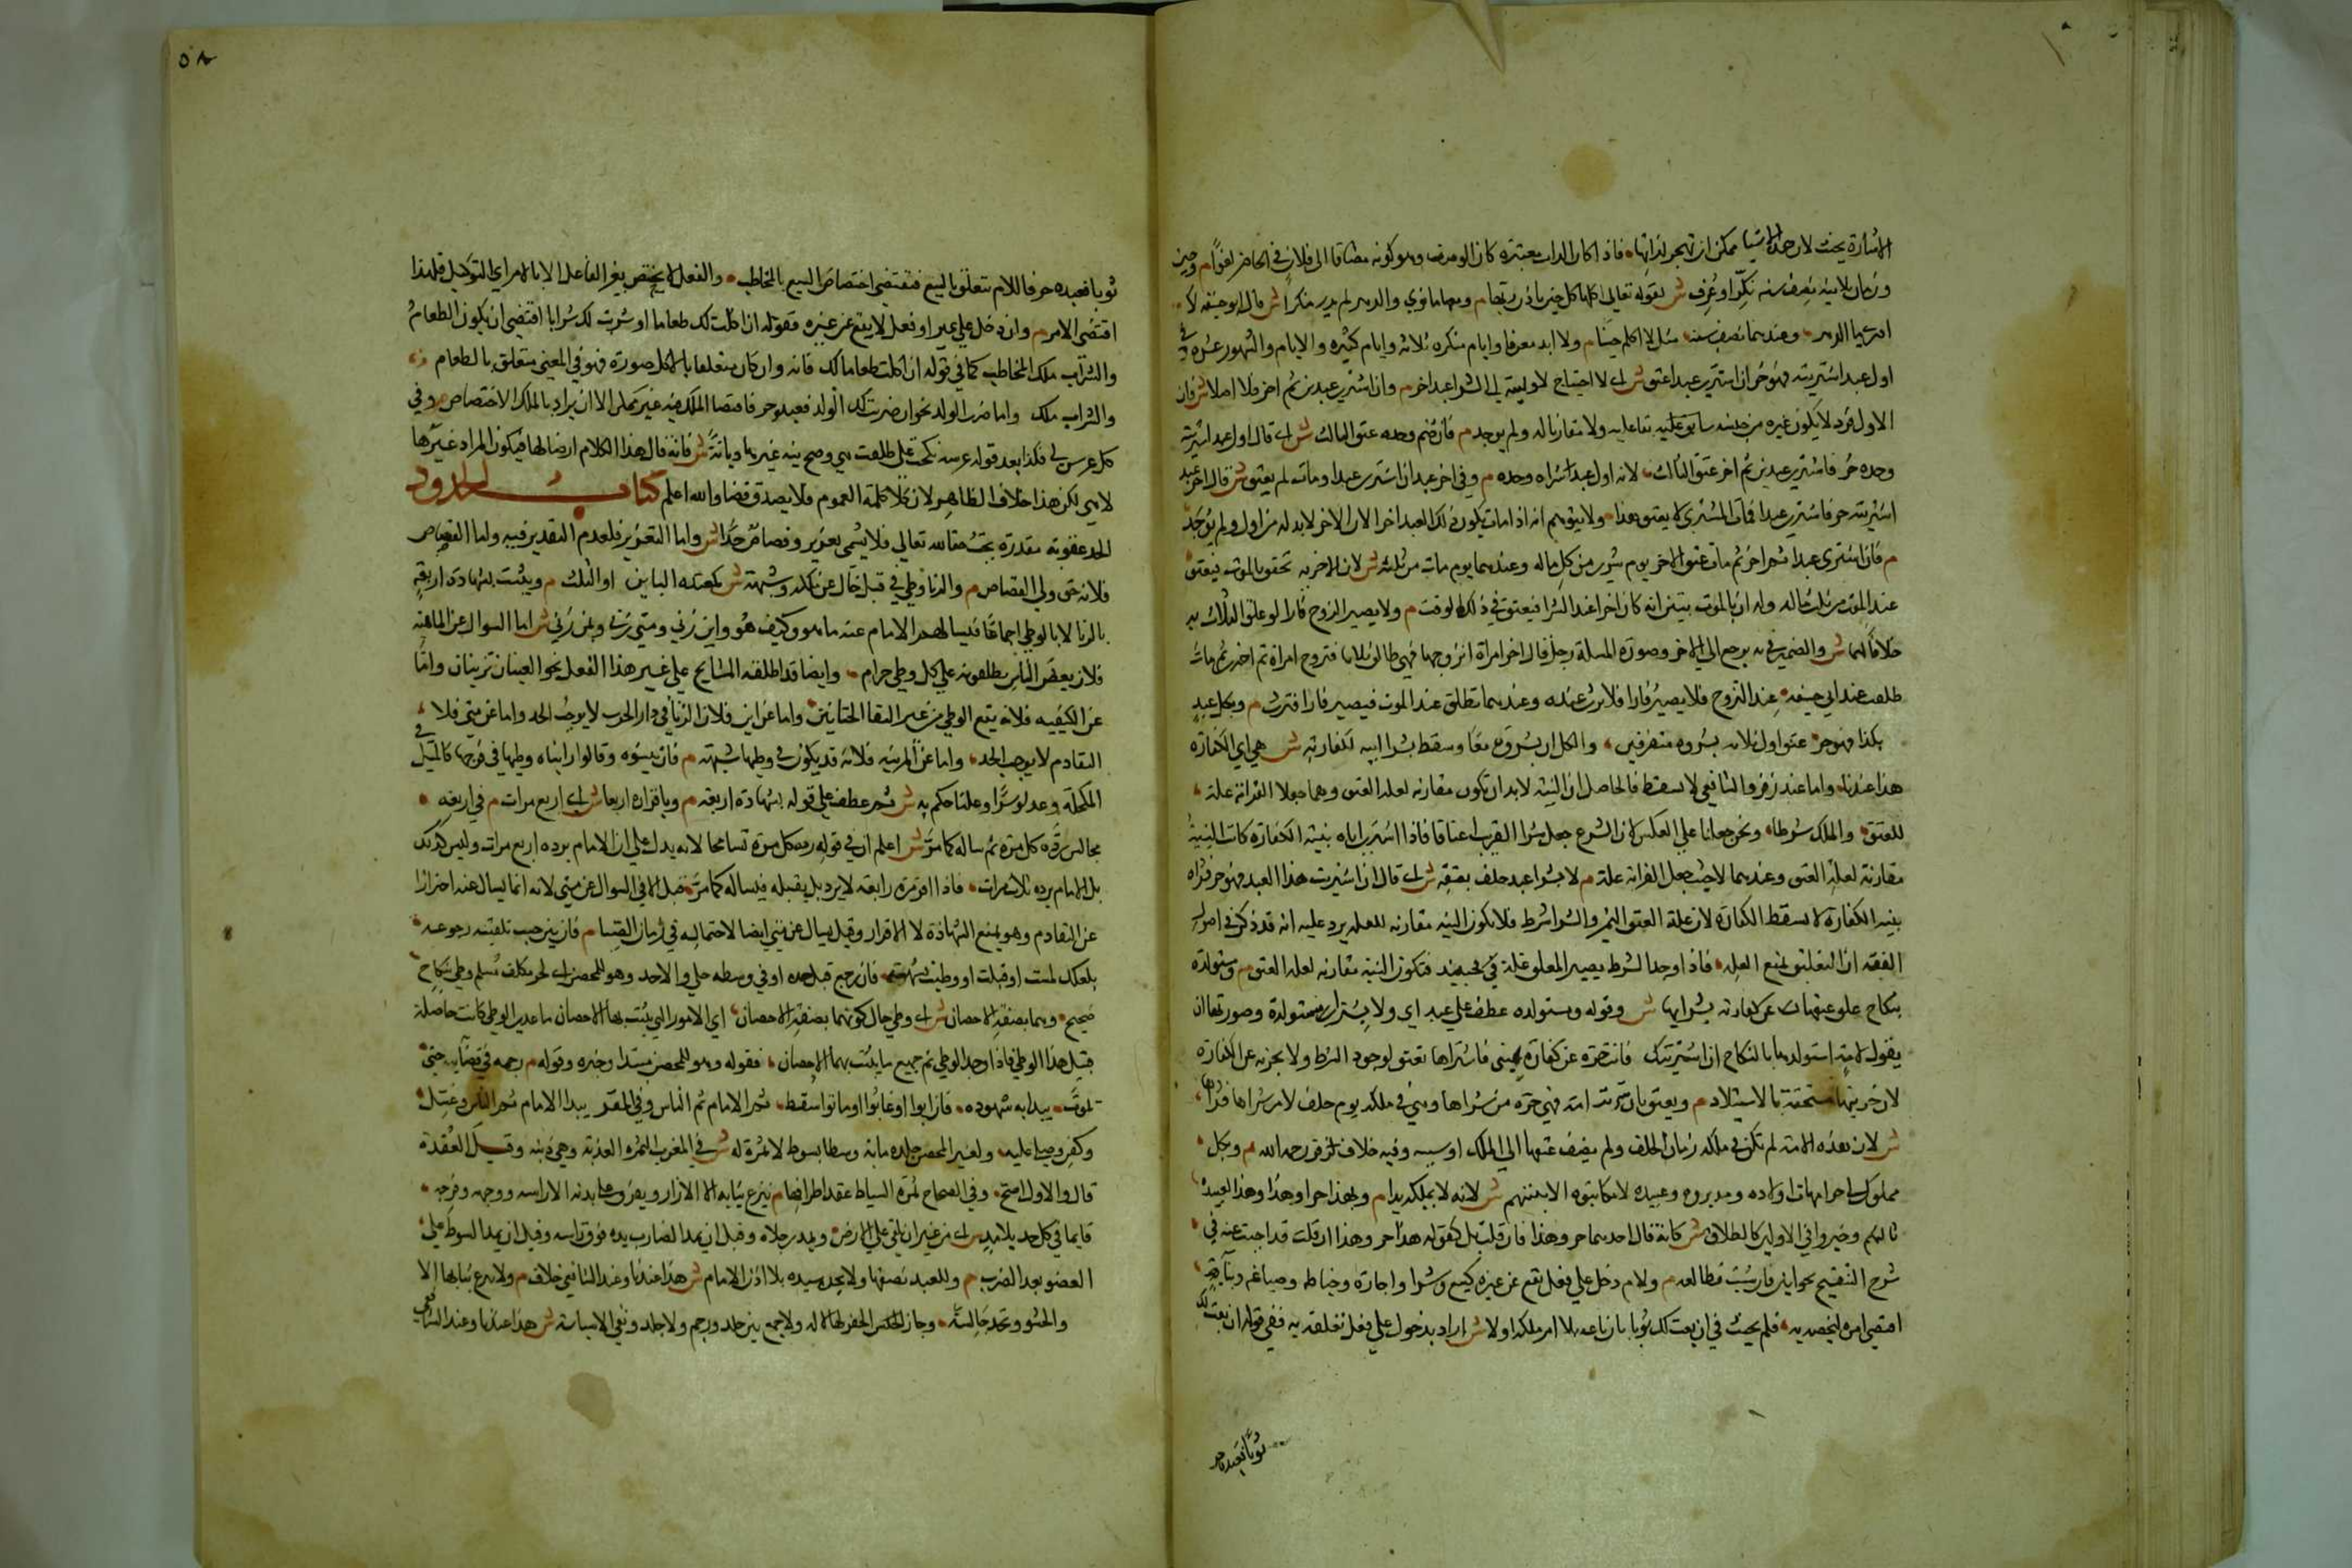 الاشارة يحنث لان هذه الاشيا ممكن ان تهجر لذاتها فاذا كان الذات معتبرة كان الوصف وهو كونه مضافا الى فلان في الحاضر لغوا م وحين
وزمان بلا نية نصف سنة نكر او عرف ش لقوله تعالى اكلها كل حين باذن ربها م ومعها ما نوي والدهر لم يدر منكرا ش قال ابو حنيفة لا
ادري ما الدهر وعندهما نصف سنة مثل لا اكلم حينا م ولا ابد معرفا وايام منكرة ثلاثة وايام كثيرة والايام والشهور عشرة في
اول عبد اشتريته فهو حر ان اشترى عبدا عتق ش اي لا احتياج لاوليته الى الشرا عبدا اخر م وان اشترى عبدين ثم اخر فلا اصلا ش فان
الاول فرد لا يكون غيره من جنسه سابق عليه ولا مقارنا له ولم يوجد م فان ضم وحده عتق الثالث ش اي قال اول عبد اشتريته
وحده حر فاشترى عبدين ثم اخر عتق الثالث لانه اول عبد اشتراه وحده م وفي اخر عبد ان اشترى عبدا ومات لم يعتق ش قال اخر عبد
اشتريته حر فاشترى عبدا فمات المشتري لا يعتق هذا ولا يتوهم انه اذا مات يكون ذلك العبد اخرا لان الاخر لابد له من اول ولم يوجد
م فان اشترى عبدا ثم اخر ثم مات عتق الاخر يوم شرى من كل ماله وعندهما يوم مات من ثلثه ش لان الاخرية تحقق بالموت فيعتق
عند الموت من ثلث ماله وله ان بالموت يتبين انه كان اخرا عند الشرا فيعتق في ذلك الوقت م ولا يصير الزوج فارا لو علق الثلاث به
خلافا لهما ش والضمير في به يرجع الى الاخر وصورة المسلة رجل قال اخر امراة اتزوجها فهي طالق ثلاثا فتزوج امراة ثم اخرى ثم مات
طلقت عند ابي حنيفة عند التزوج فلا يصير فارا فلا ترث عنده وعندهما تطلق عند الموت فيصير فارا فترث م وبكل عبد
بكذا فهو حر عتق اول ثلاثة بشروه متفرقين والكل ان بشروه معا وسقط بشرا ابيه لكفارته ش هي اي الكفارة
هذا عندنا واما عند زفر والشافعي لا يسقط فالحاصل ان النية لابد ان تكون مقارنة لعلة العتق وهما جعلا القرابة علة
للعتق والملك شرطا ونحن جعلنا على العكس لان الشرع جعل شرا القريب اعتاقا فاذا اشترى اباه بنية الكفارة كانت النية
مقارنة لعلة العتق وعندهما لا حيث جعل القرابة علة م لا بشرا عبد حلف بعتقه ش اي قال ان اشتريت هذا العبد فهو حر فشراه
بنية الكفارة لا يسقط الكفارة لان علة العتق اليمين والشرا شرط فلا تكون النية مقارنة للعلة يرد عليه انه قد ذكر في اصول
الفقه ان التعليق يمنع العلة فاذا وجد الشرط يصير المعلق علة في حينئذ فتكون النية مقارنة لعلة العتق م ومستولدة
بنكاح علق عتقها عن كفارته بشرايها ش وقوله ومستولدة عطف على عبد اي ولا بشرا مستولدة وصورتها ان
يقول لامة استولدها بالنكاح ان اشتريتك فانت حرة عن كفارة يميني فاشتراها تعتق لوجود الشرط ولا يجزيه عن الكفارة
لان حريتها مستحقة بالاستيلاد م ويعتق بان تسريت امة فهي حرة من شراها وهي في ملكه يوم حلف لا من شراها فتسراها
ش لان هذه الامة لم تكن في ملكه زمان الحلف ولم يضف عتقها الى الملك او سببه وفيه خلاف لزفر رحمه الله م وبكل
مملوك لي حر امهات اولاده ومدبروه وعبيده لا مكاتبوه الا بنيتهم ش لانه لا يملكه يدا م وبهذا حر او هذا وهذا لعبيده
ثالثهم وخير في الاولين كالطلاق ش كانه قال احدهما حر وهذا فان قلت بل كقوله هذا حر وهذا ان قلت قد اجبت عنه في
شرح التنقيح بجوابين فان شيت فطالعه م ولام دخل على فعل يقع عن غيره كبيع وشرا واجارة وخياطة وصياغة وبناء
اقتضى امره ليخصه به فلم يحنث في ان بعت لك ثوبا ان باعه بلا امر ملكه اولا ش اراد بدخول على فعل تعلقه به ففي قوله ان بعت لك
ثوبا فعبده حر
٥٨
ثوبا فعبده حر فاللام تتعلق بالبيع فتقتضي اختصاص البيع بالمخاطب والفعل لا يختص بغير الفاعل الا بالامر اي التوكيل فلهذا
اقتضى الامر م وان دخل على عين او فعل لا يقع عن غيره فقوله ان اكلت لك طعاما او شربت لك شرابا اقتضى ان يكون الطعام
والشراب ملك المخاطب كما في قوله ان اكلت طعاما لك فانه وان كان متعلقا بالاكل صورة فهو في المعنى متعلق بالطعام
والشراب ملك واما ضرب الولد نحو ان ضربت لك الولد فعبده حر فاقتضا الملك فيه غير ممكن الا ان يراد بالملك الاختصاص م وفي
كل عرس لي فكذا بعد قول عرسه نكحت علي طلقت هي وصح نية غيرها ديانة ش فانه قال هذا الكلام ارضا لها فيكون المراد غيرها
لا هي لكن هذا خلاف الظاهر لان كلا كلمة العموم فلا يصدق قضا والله اعلم كتاب الحدود
الحد عقوبة مقدرة تجب حقا لله تعالى فلا يسمى تعزير وقصاص حدا ش واما التعزير فلعدم التقدير فيه واما القصاص
فلانه حق ولي القصاص م والزنا وطي في قبل خال عن ملك وشبهته ش كمعتدة الباين او الثلث م ويثبت بشهادة اربعة
بالزنا لا بالوطي اجماعا فيسالهم الامام عنه ما هو وكيف هو واين زنى ومتى زنى وبمن زنى ش اما السوال عن الماهية
فلان بعض الناس يطلقونه على كل وطي حرام وايضا قد اطلقه الشارع على غير هذا الفعل نحو العينان تزنيان واما
عن الكيفيه فلانه يقع الوطي من غير التقا الختانين واما عن اين فلان الزنا في دار الحرب لا يوجب الحد واما عن متى فلان
التقادم لا يوجب الحد واما عن المزنية فلانه قد يكون في وطيها شبهة م فان بينوه وقالوا رايناه وطيها في فرجها كالميل في
المكحلة وعدلوا سرا وعلنا حكم به ش ثم عطف على قوله بشهادة اربعة م وباقراره اربعا ش اي اربع مرات م في اربعة
مجالس رده كل مرة ثم ساله كما مر ش اعلم ان في قوله رده كل مرة تسامحا لانه يدل على ان الامام يرده اربع مرات وليس كذلك
بل الامام يرده ثلاث مرات فاذا اقر مرة رابعة لا يرد بل يقبله فيساله كما مر قيل الا في السوال عن متى لانه انما يسال عنه احترازا
عن التقادم وهو يمنع الشهادة لا الاقرار وقيل يسال عن متى ايضا لاحتماله في زمان الصبا م فان بين حب تلقينه رجوعه
بلعلك لمست او قبلت او وطيت بشبهة فان رجع قبل حده او في وسطه خلي والا حد وهو للمحصن اي لحر مكلف مسلم وطي بنكاح
صحيح وهما بصفة الاحصان ش اي وطي حال كونهما بصفة الاحصان اي الامور التي يثبت بها الاحصان ما عدا الوطي كانت حاصلة
قبل هذا الوطي فاذا وجد الوطي تم جميع ما يثبت بهما الاحصان فقوله وهو للمحصن مبتدا وخبره وقوله م رجمه في فضاء حتى
يموت يبدا به شهوده فان ابوا او غابوا او ماتوا سقط ثم الامام ثم الناس وفي المقر يبدا الامام ثم الناس وغسل
وكفن وصلي عليه ولغير المحصن جلده ماية وسطا بسوط لا ثمرة له ش في المغرب الثمرة العذبة وهي ذنبه وقيل العقدة
قال والاول اصح وفي الصحاح ثمرة السياط عقد اطرافها م ينزع ثيابه الا الازار ويفرق على بدنه الا راسه ووجهه وفرجه
قايما في كل حد بلا مد ش اي من غير ان يلقى على الارض ويمد رجلاه وقيل ان يمد الضارب يده فوق راسه وقيل ان يمد السوط على
العضو بعد الضرب م وللعبد نصفها ولا يحد سيده بلا اذن الامام ش هذا عندنا وعند الشافعي خلاف م ولا ينزع ثيابها الا
والحشو وتحد جالسة وجاز الحفر لها لا له ولا جمع بين جلد ورجم ولا جلد ونفي الا سياسة ش هذا عندنا وعند الشافعي